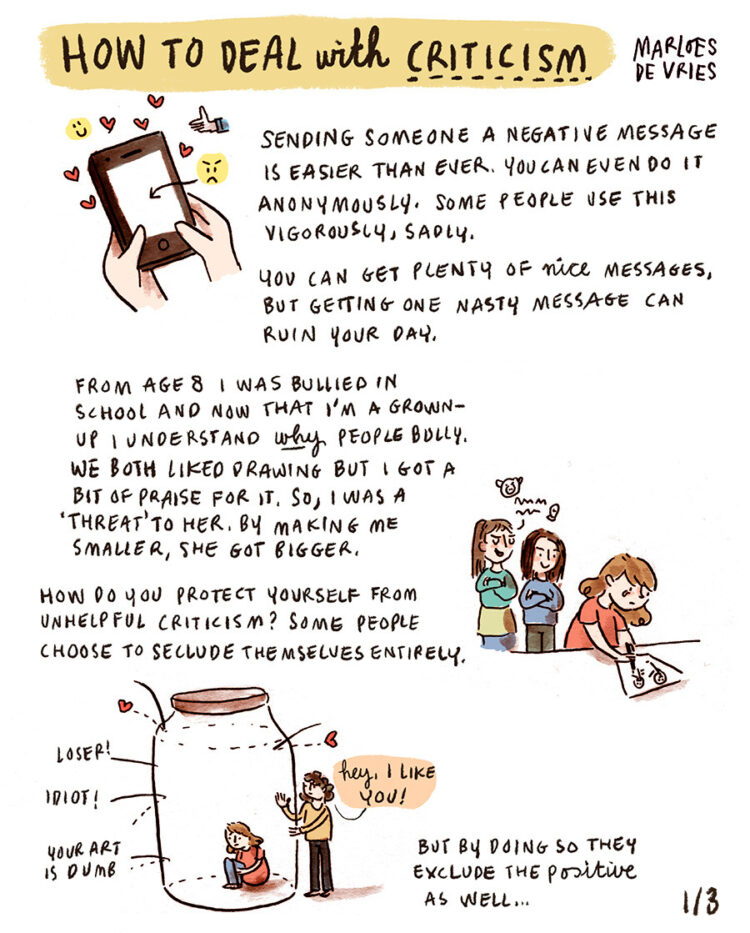 HOW TO DEAL with CRITICISM
MARLOES
DE VRIES
SENDING SOMEONE A NEGATIVE MESSAGE
IS EASIER THAN EVER. YOU CAN EVEN DO IT
ANONYMOUSLY. SOME PEOPLE USE THIS
VIGOROUSLY, SADLY.
YOU CAN GET PLENTY OF nice MESSAGES,
BUT GETTING ONE NASTY MESSAGE CAN
RUIN YOUR DAY.
FROM AGE 8 I WAS BULLIED IN
SCHOOL AND NOW THAT I'M A GROWN-
UP I UNDERSTAND why PEOPLE BULLY.
WE BOTH LIKED DRAWING BUT I GOT A
BIT OF PRAISE FOR IT. SO, I WAS A
'THREAT' TO HER. BY MAKING ME
SMALLER, SHE GOT BIGGER.
HOW DO YOU PROTECT YOURSELF FROM
UNHELPFUL CRITICISM? SOME PEOPLE
CHOOSE TO SECLUDE THEMSELVES ENTIRELY.
LOSER!
IDIOT!
YOUR ART
IS DUMB
hey, I LIKE
YOU!
BUT BY DOING SO THEY
EXCLUDE THE positive
AS WELL...
1/3